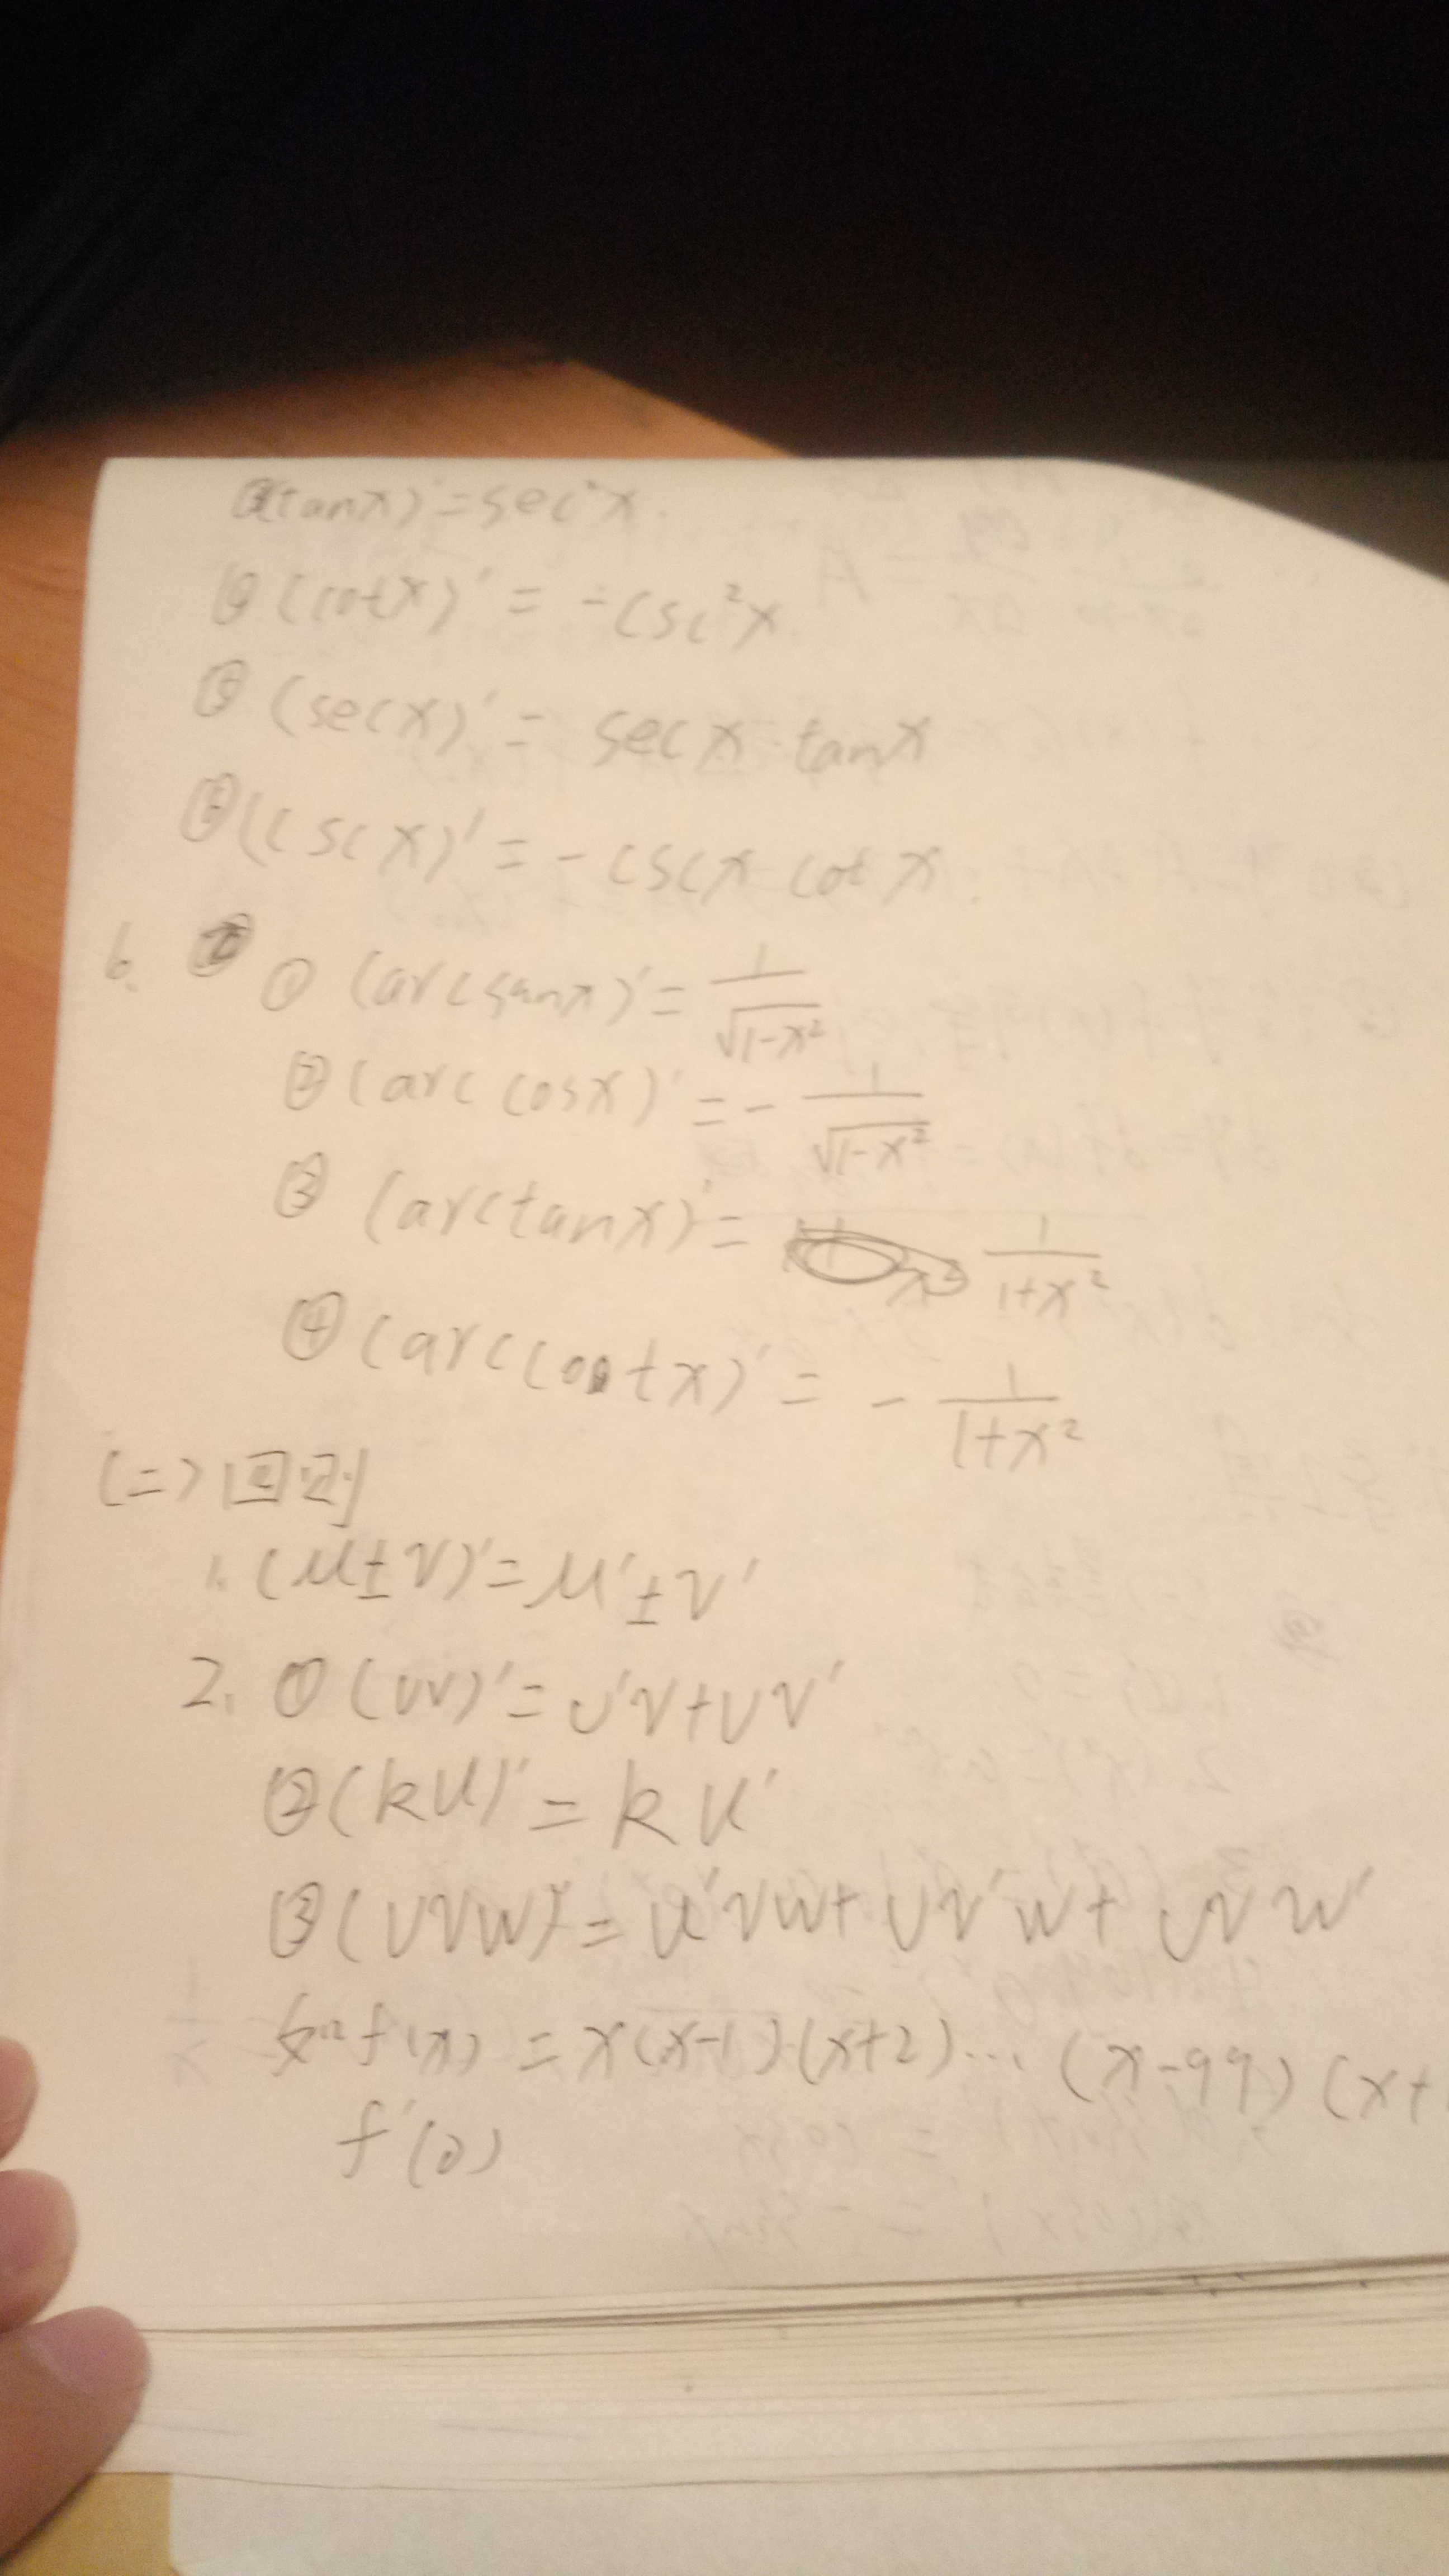 ③(tanx)'=sec²x.
④(cotx)' = -csc²x
⑤ (secx)' = secx·tanx
⑥(cscx)' = -cscx cotx.
6. ① (arcsinx)' = 1/√(1-x²)
② (arccosx)' = - 1/√(1-x²)
③ (arctanx)' = 1/(1+x²)
④ (arccotx)' = - 1/(1+x²)
(二) 四则
1. (u±v)'=u'±v'
2. ① (uv)'=u'v+uv'
②(ku)'=ku'
③(uvw)'=u'vw+uv'w+uvw'
f(x) = x(x-1)(x+2)...(x-99)(x+
f'(0)